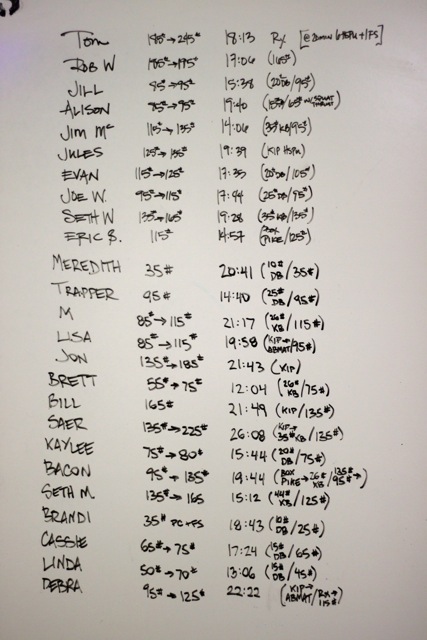 Tom 185#→245# 18:13 Rx
ROB W 185#→195# 17:06 (165#)
JILL 85#→95# 15:38 (20#DB/95#)
ALISON 75#→95# 19:40
JIM Mc 115#→135# 14:06 (35#KB/95#)
JULES 125#→135# 19:39 (KIP HSPU)
EVAN 115#→125# 17:35 (20#DB/105#)
JOE W. 95#→115# 17:44 (25#DB/95#)
SETH W 135#→165# 19:28 (35#KB/135#)
ERIC S. 115# 14:57 (BOX PIKE/125#)
MEREDITH 35# 20:41 (10# DB/35#)
TRAPPER 95# 14:40 (25# DB/95#)
M 85#→115# 21:17 (26# KB/115#)
LISA 85#→115# 19:58 (KIP→ABMAT/95#)
JON 135#→185# 21:43 (KIP)
BRETT 55#→75# 12:04 (26# KB/75#)
BILL 165# 21:49 (KIP/135#)
SAER 135#→225# 26:08 (KIP→35#KB/135#)
KAYLEE 75#→80# 15:44 (20# DB/75#)
BACON 95#→135# 19:44 (BOX PIKE→26# KB/135#→95#)
SETH M. 135#→165 15:12 (44# KB/125#)
BRANDI 35# PC+FS 18:43 (10# DB/25#)
CASSIE 65#→75# 17:24 (15# DB/65#)
LINDA 50#→70# 13:06 (15# DB/45#)
DEBRA 95#→125# 22:22 (KIP→ABMAT/RX→115#)